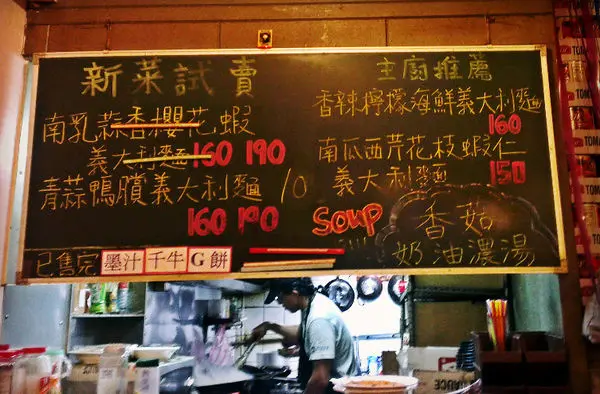 新菜試賣
南乳蒜香櫻花蝦
義大利麵 160 190
青蒜鴨臏義大利麵 10
160 190
已售完 墨汁 千牛 G餅
主廚推薦
香辣檸檬海鮮義大利麵
160
南瓜西芹花枝蝦仁
義大利麵 150
Soup 香菇
奶油濃湯